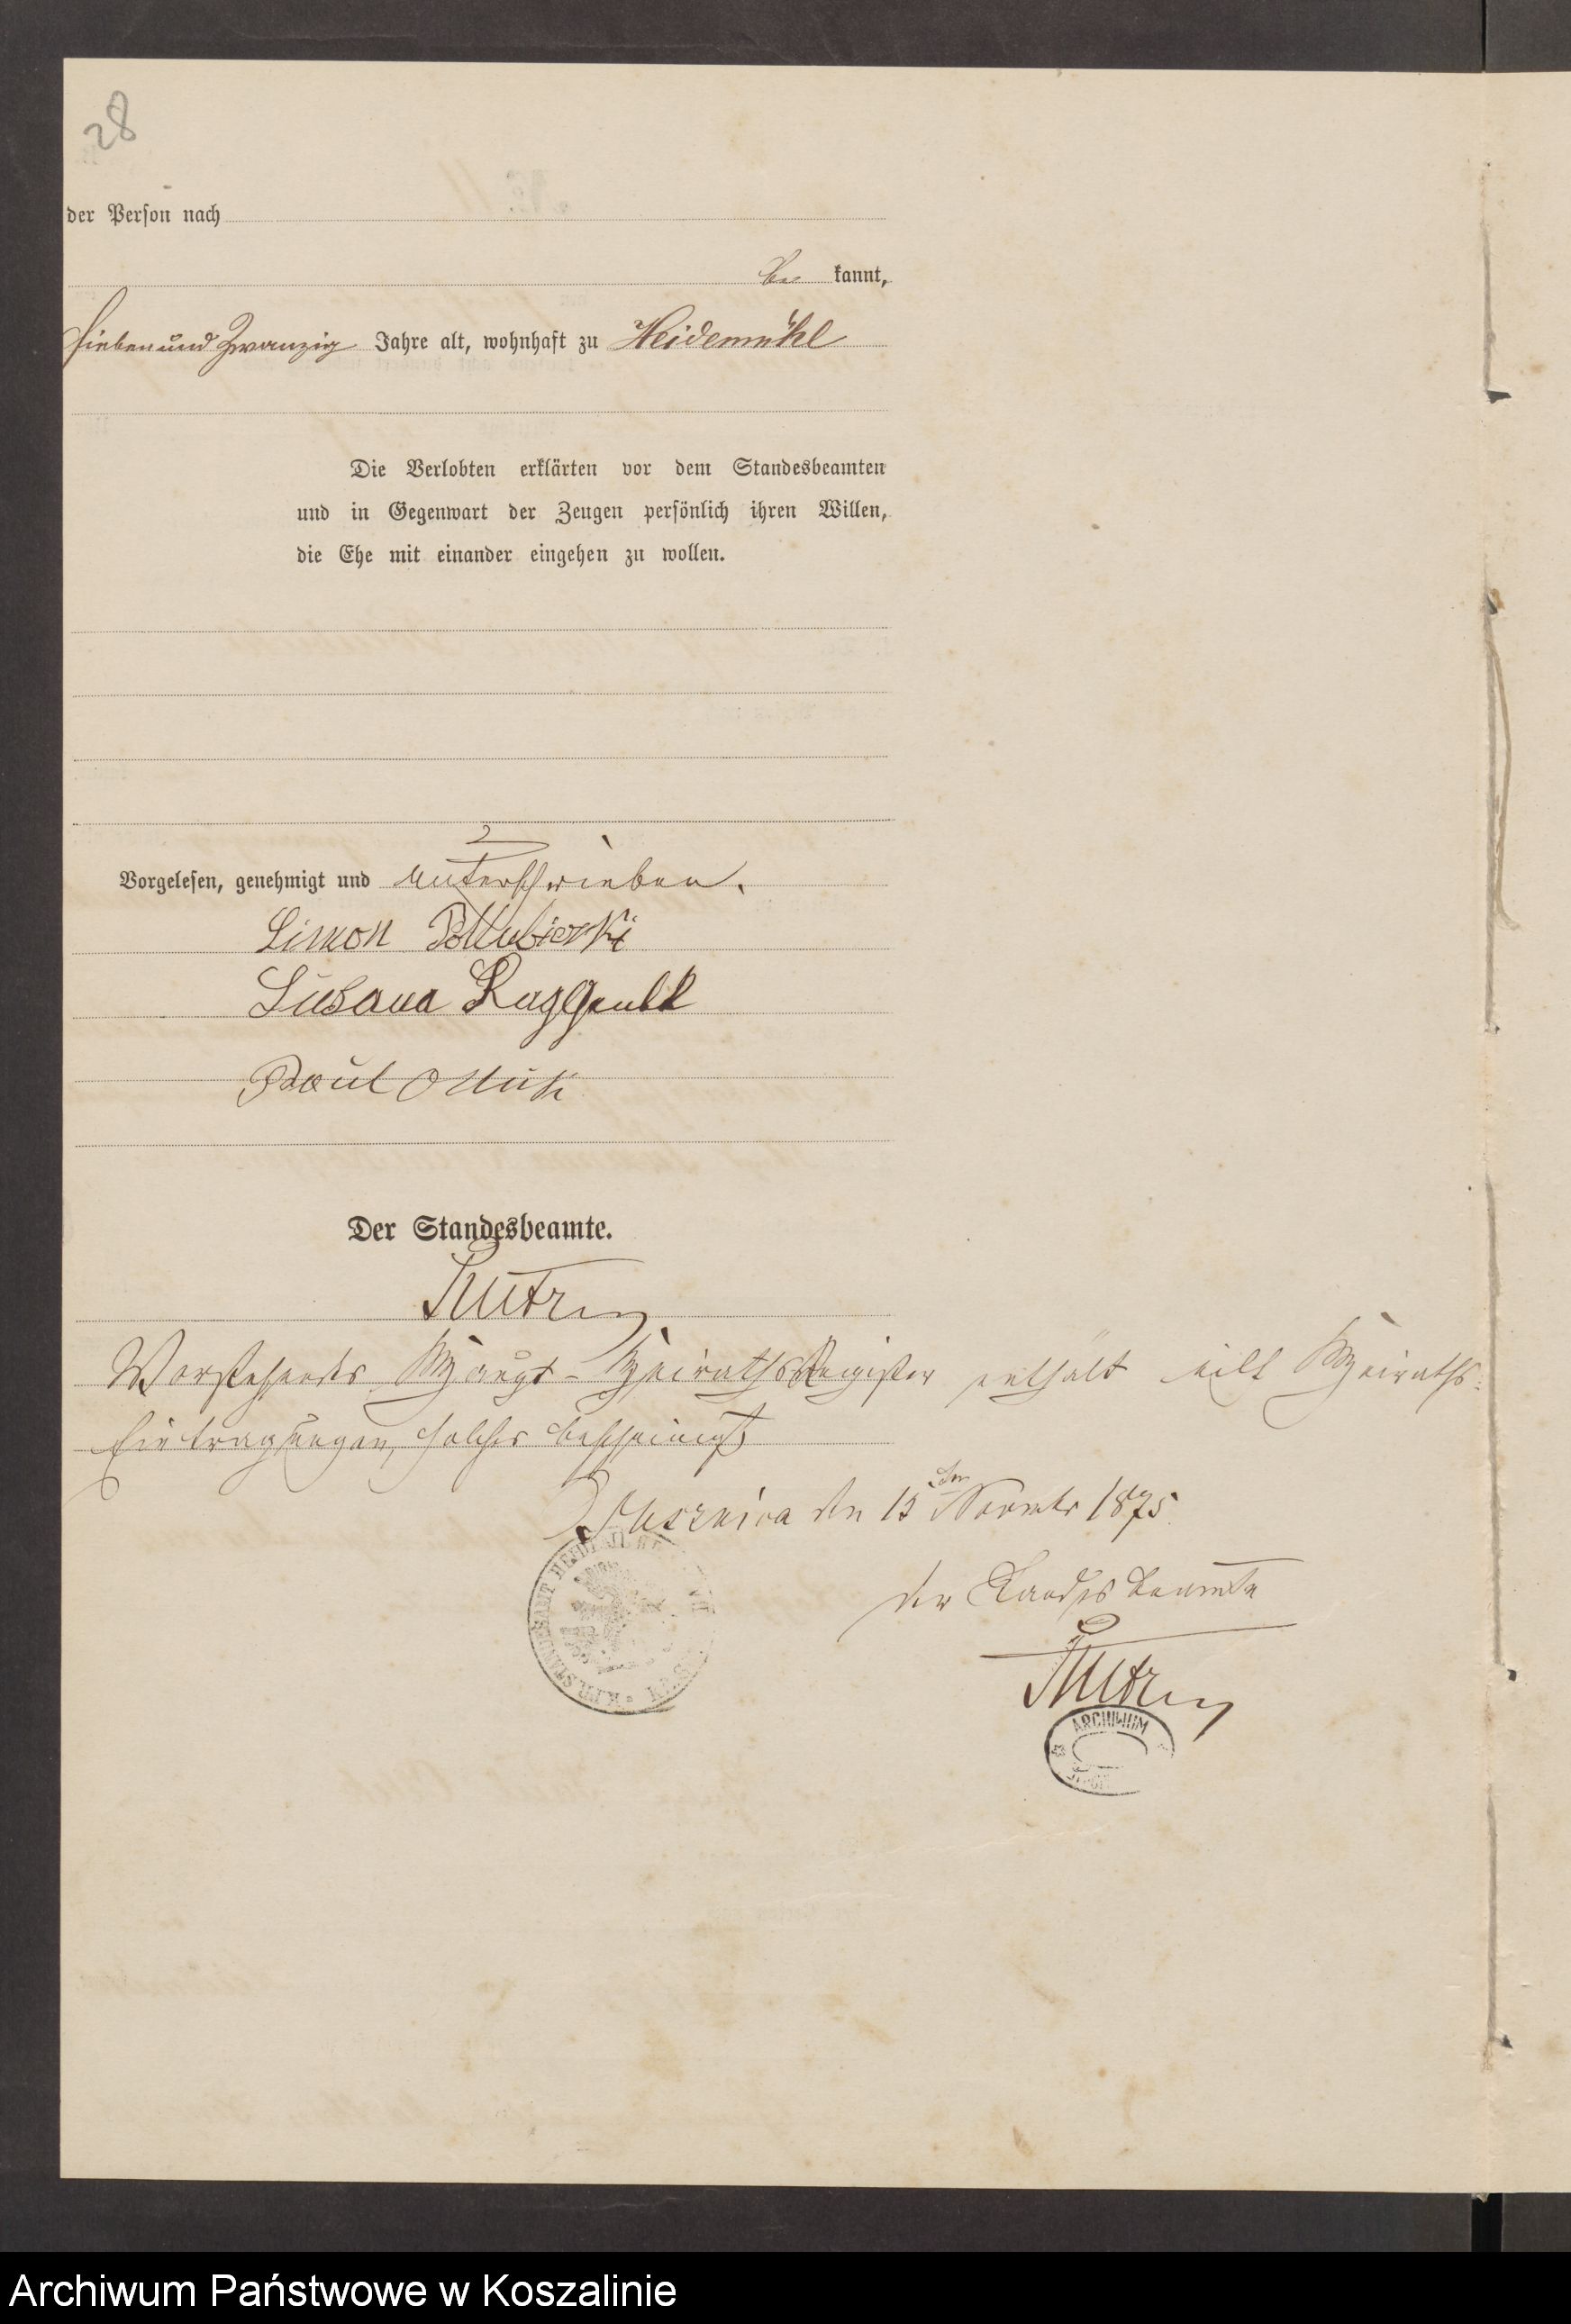 28
der Person nach
be kannt,
sieben und zwanzig Jahre alt, wohnhaft zu Heidemühl
Die Verlobten erklärten vor dem Standesbeamten
und in Gegenwart der Zeugen persönlich ihren Willen,
die Ehe mit einander eingehen zu wollen.
Vorgelesen, genehmigt und unterschrieben.
Simon
Susana
Paul
Der Standesbeamte.
Vorstehendes Haupt-Heiraths Register enthält eilf Heiraths-
Eintragungen, solches bescheinigt
den 15 ten November 1875
der Standesbeamte
K. PR. STANDESAMT
ARCHIWUM
Archiwum Państwowe w Koszalinie